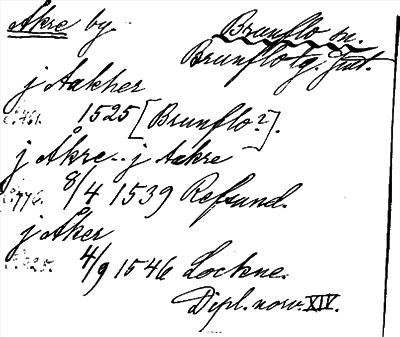 Åkre by. Brunflo sn.
Brunflo tg. Jmt.
j Aakher
1525 [Brunflo?].
j Åkre.. j aakre
8/4 1539 Refsund.
j Åker
4/9 1546 Lockne.
Dipl. norv. XIV.